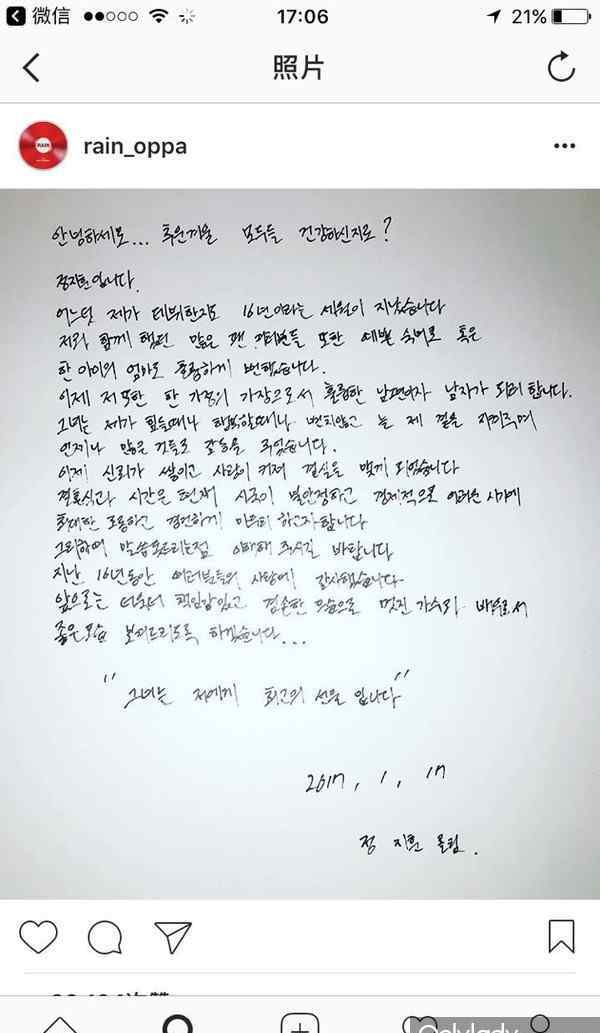 微信
17:06
21%
照片
rain_oppa
RAIN
안녕하세요... 추운겨울 모두들 건강하신지요?
정지훈입니다.
어느덧 제가 데뷔한지도 16년이라는 세월이 지났습니다
저와 함께 했던 많은 팬 여러분들 또한 예쁜 숙녀로 혹은
한 아이의 엄마로 훌륭하게 변했습니다.
이제 저 또한 한 가정의 가장으로서 훌륭한 남편이자 남자가 되려 합니다.
그녀는 제가 힘들때나 행복할때나 변치않고 늘 제 곁을 지켜주며
언제나 많은 것들로 감동을 주었습니다.
이제 신뢰가 쌓이고 사랑이 커져 결실을 맺게 되었습니다
결혼식과 시간은 현재 시국이 불안정하고 경제적으로 어려운 시기에
최대한 조용하고 경건하게 마무리 하고자 합니다
그리하여 말씀못드리는점 이해해 주시길 바랍니다
지난 16년동안 여러분들의 사랑에 감사했습니다.
앞으로는 더욱더 책임감있고 겸손한 모습으로 멋진 가수와 배우로서
좋은모습 보여드리도록 하겠습니다...
" 그녀는 저에게 최고의 선물 입니다 "
2017, 1, 17
정 지훈 올림.
Onlylady